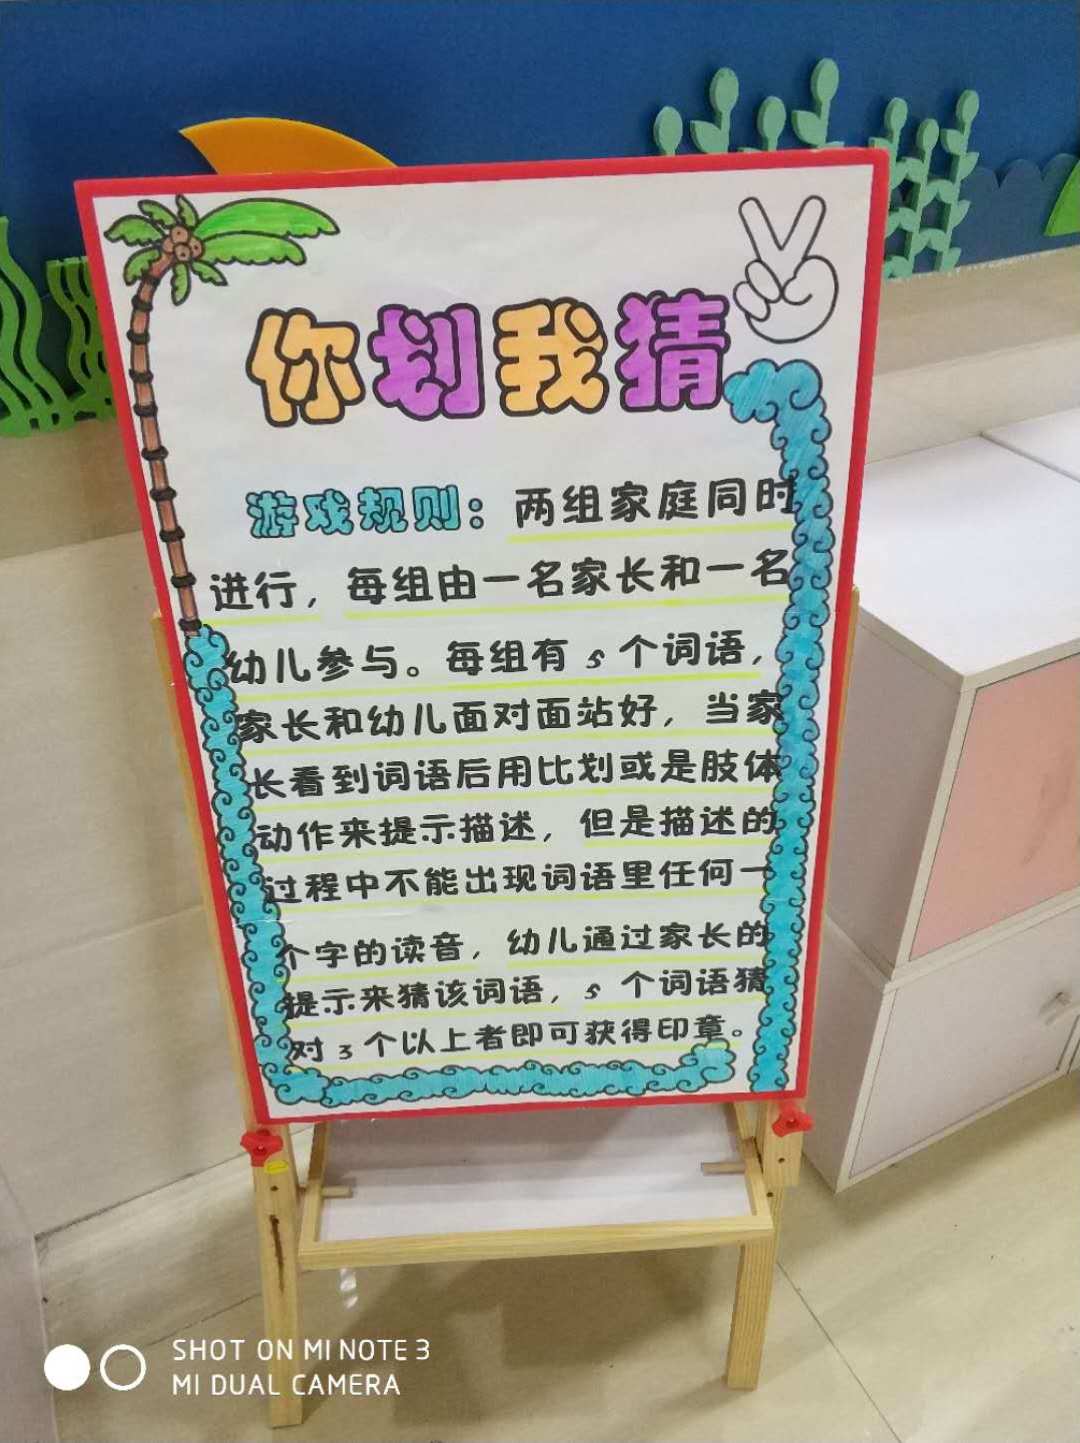 你划我猜
游戏规则：两组家庭同时
进行，每组由一名家长和一名
幼儿参与。每组有5个词语，
家长和幼儿面对面站好，当家
长看到词语后用比划或是肢体
动作来提示描述，但是描述的
过程中不能出现词语里任何一
个字的读音，幼儿通过家长的
提示来猜该词语，5个词语猜
对3个以上者即可获得印章。
SHOT ON MI NOTE 3
MI DUAL CAMERA